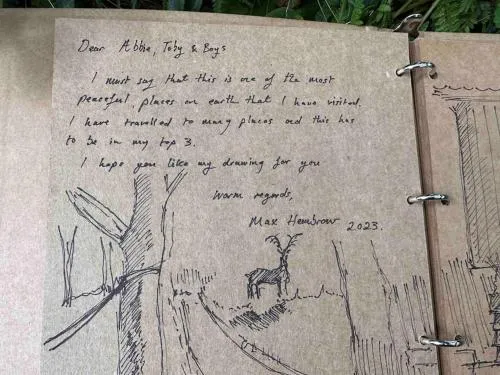 Dear Abbie, Toby & Boys
I must say that this is one of the most
peaceful places on earth that I have visited.
I have travelled to many places and this has
to be in my top 3.
I hope you like my drawing for you
Warm regards,
Max Hembrow 2023.